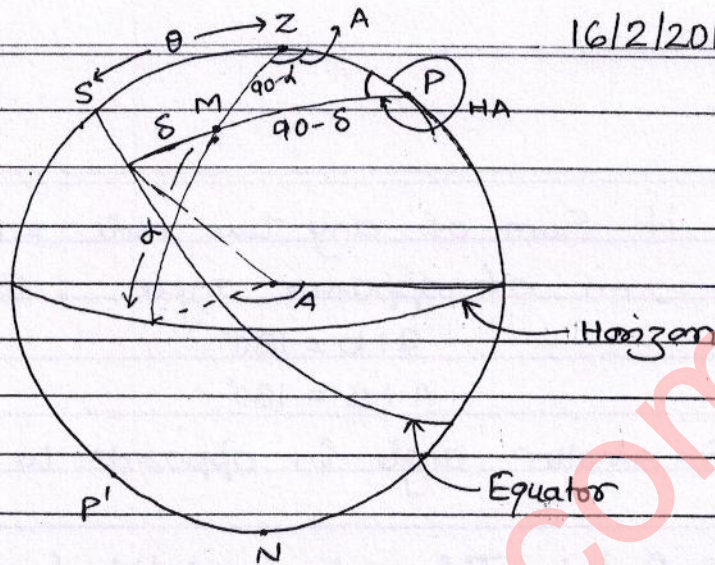 16/2/201
θ Z A
S
90-α
P
M
HA
δ 90-δ
α
A
Horizon
Equator
P'
N
com